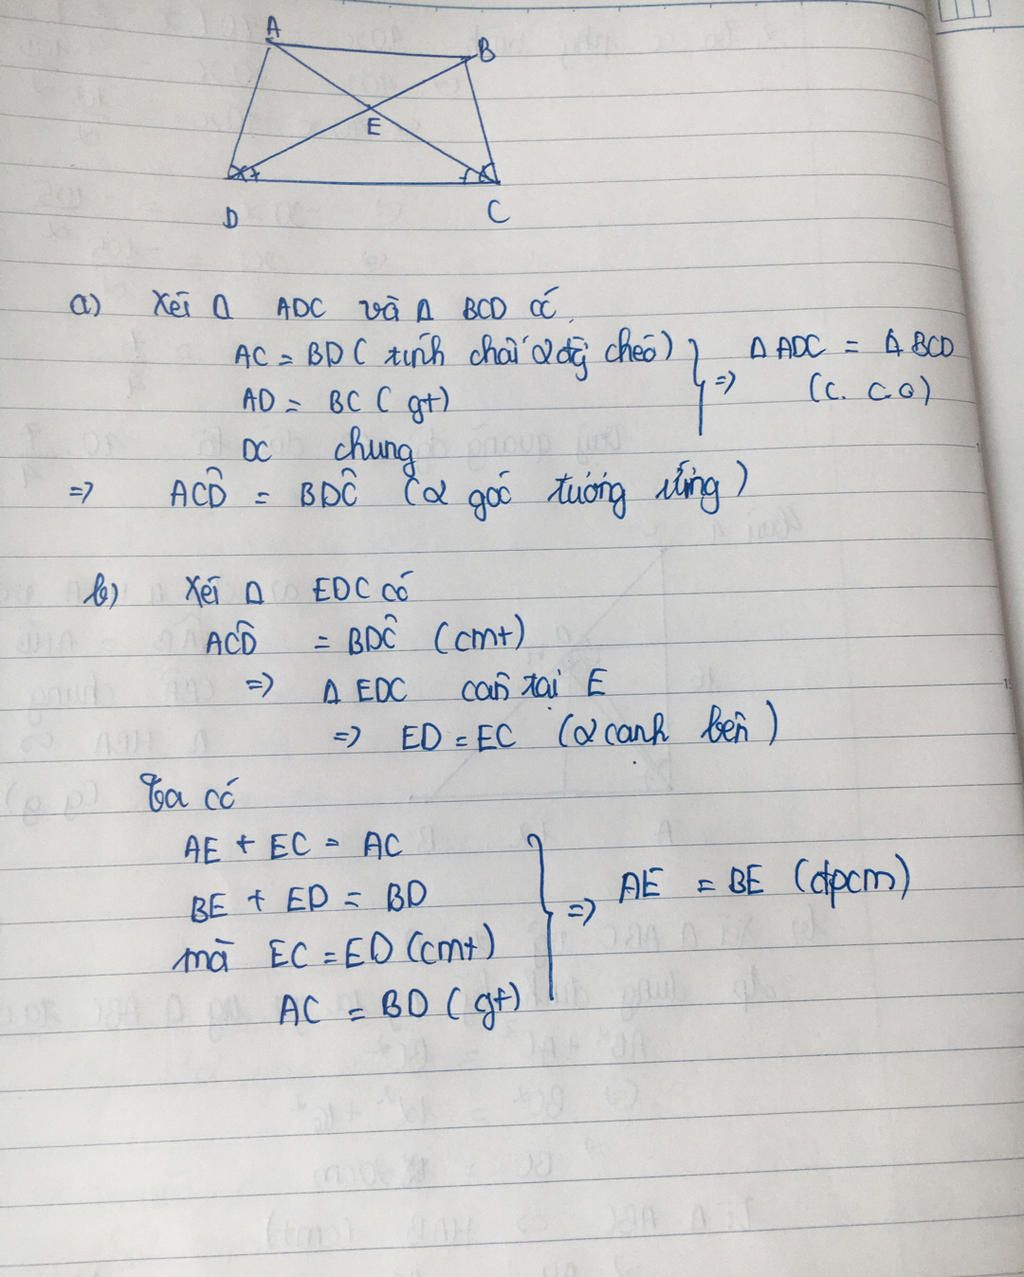 A
B
E
D
C
a) Xét Δ ADC và Δ BCD có
AC = BD ( tính chất 2 đg chéo)
AD = BC ( gt)
DC chung
=> Δ ADC = Δ BCD
(c. c. c)
=> ACD̂ = BDĈ (2 góc tương ứng)
b) Xét Δ EDC có
ACD̂ = BDĈ (cmt)
=> Δ EDC cân tại E
=> ED = EC (2 cạnh bên)
Ta có
AE + EC = AC
BE + ED = BD
mà EC = ED (cmt)
AC = BD (gt)
=> AE = BE (đpcm)